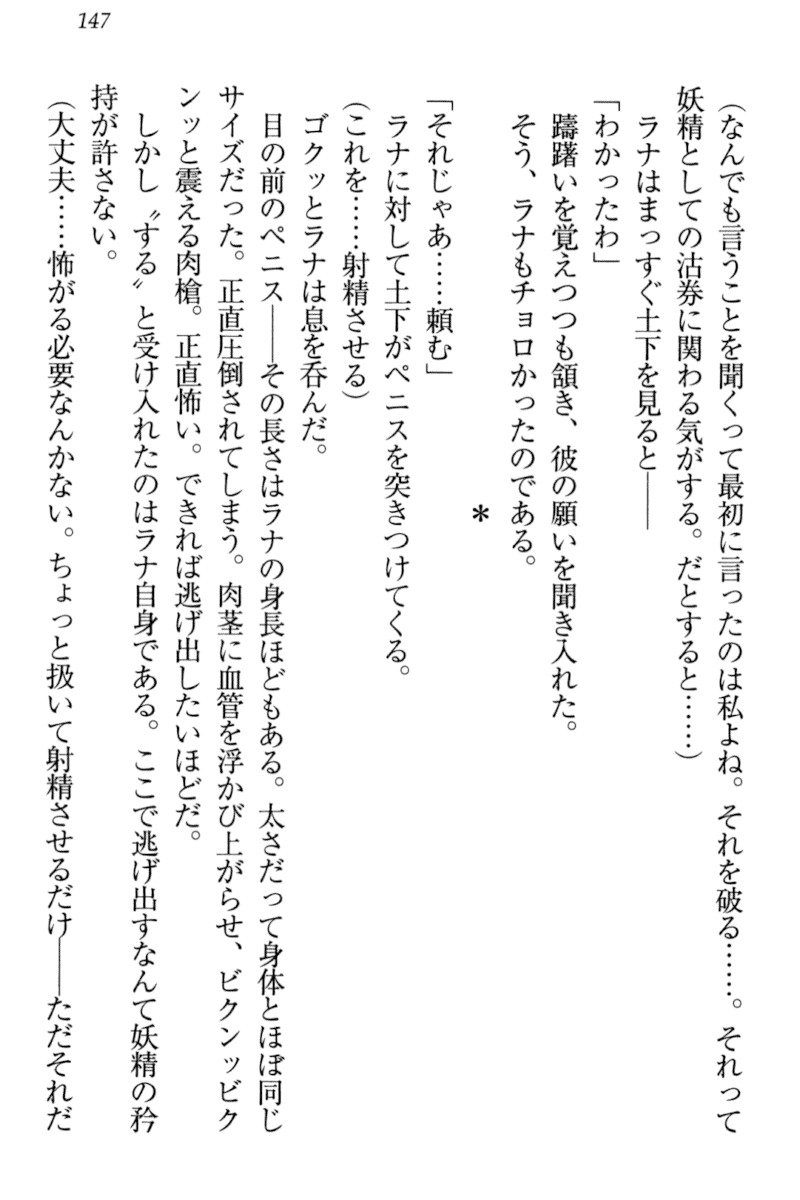 147
（なんでも言うことを聞くって最初に言ったのは私よね。それを破る……。それって
妖精としての沽券に関わる気がする。だとすると……）
　ラナはまっすぐ土下を見ると――
「わかったわ」
　躊躇いを覚えつつも頷き、彼の願いを聞き入れた。
　そう、ラナもチョロかったのである。
＊
「それじゃあ……頼む」
　ラナに対して土下がペニスを突きつけてくる。
（これを……射精させる）
　ゴクッとラナは息を呑んだ。
　目の前のペニス――その長さはラナの身長ほどもある。太さだって身体とほぼ同じ
サイズだった。正直圧倒されてしまう。肉茎に血管を浮かび上がらせ、ビクンッビク
ンッと震える肉槍。正直怖い。できれば逃げ出したいほどだ。
　しかし〝する〟と受け入れたのはラナ自身である。ここで逃げ出すなんて妖精の矜
持が許さない。
（大丈夫……怖がる必要なんかない。ちょっと扱いて射精させるだけ――ただそれだ